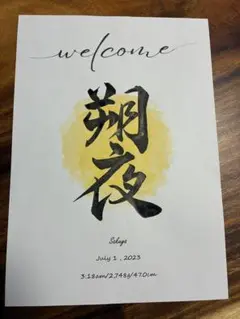 welcome
朔夜
Sakuya
July 1 , 2023
3:12am/2,748g/47.0cm